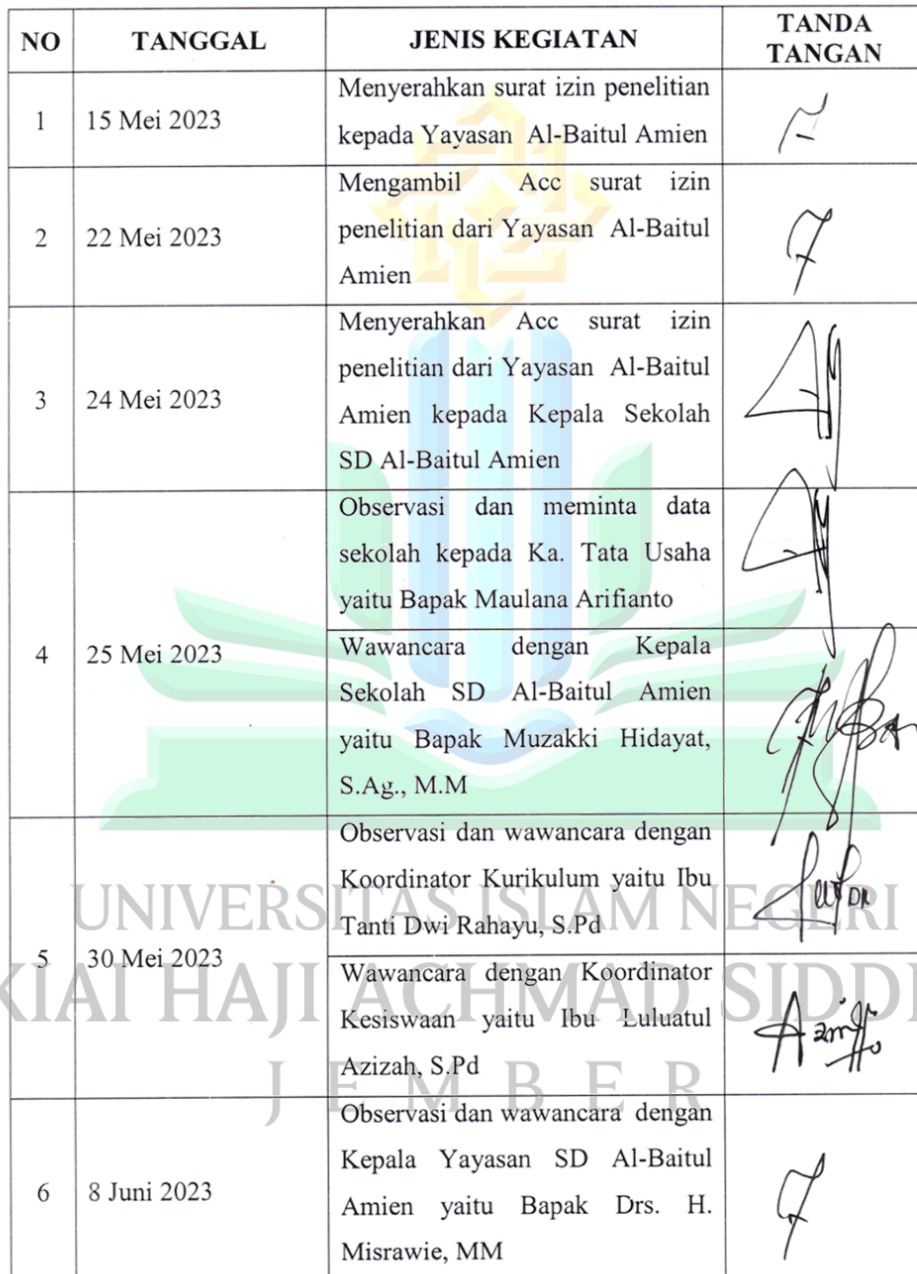 NO TANGGAL JENIS KEGIATAN TANDA TANGAN
1 15 Mei 2023 Menyerahkan surat izin penelitian
kepada Yayasan Al-Baitul Amien
2 22 Mei 2023 Mengambil Acc surat izin
penelitian dari Yayasan Al-Baitul
Amien
3 24 Mei 2023 Menyerahkan Acc surat izin
penelitian dari Yayasan Al-Baitul
Amien kepada Kepala Sekolah
SD Al-Baitul Amien
4 25 Mei 2023 Observasi dan meminta data
sekolah kepada Ka. Tata Usaha
yaitu Bapak Maulana Arifianto
Wawancara dengan Kepala
Sekolah SD Al-Baitul Amien
yaitu Bapak Muzakki Hidayat,
S.Ag., M.M
5 30 Mei 2023 Observasi dan wawancara dengan
Koordinator Kurikulum yaitu Ibu
Tanti Dwi Rahayu, S.Pd
Wawancara dengan Koordinator
Kesiswaan yaitu Ibu Luluatul
Azizah, S.Pd
6 8 Juni 2023 Observasi dan wawancara dengan
Kepala Yayasan SD Al-Baitul
Amien yaitu Bapak Drs. H.
Misrawie, MM
UNIVERSITAS ISLAM NEGERI
KIAI HAJI ACHMAD SIDDI
JEMBER